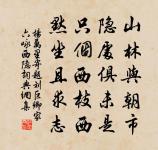 山林與朝市
隐處俱未是
只個西枝西
默坐且求志
楊萬里寄題刘巨卿家
六咏西隐詞典網集